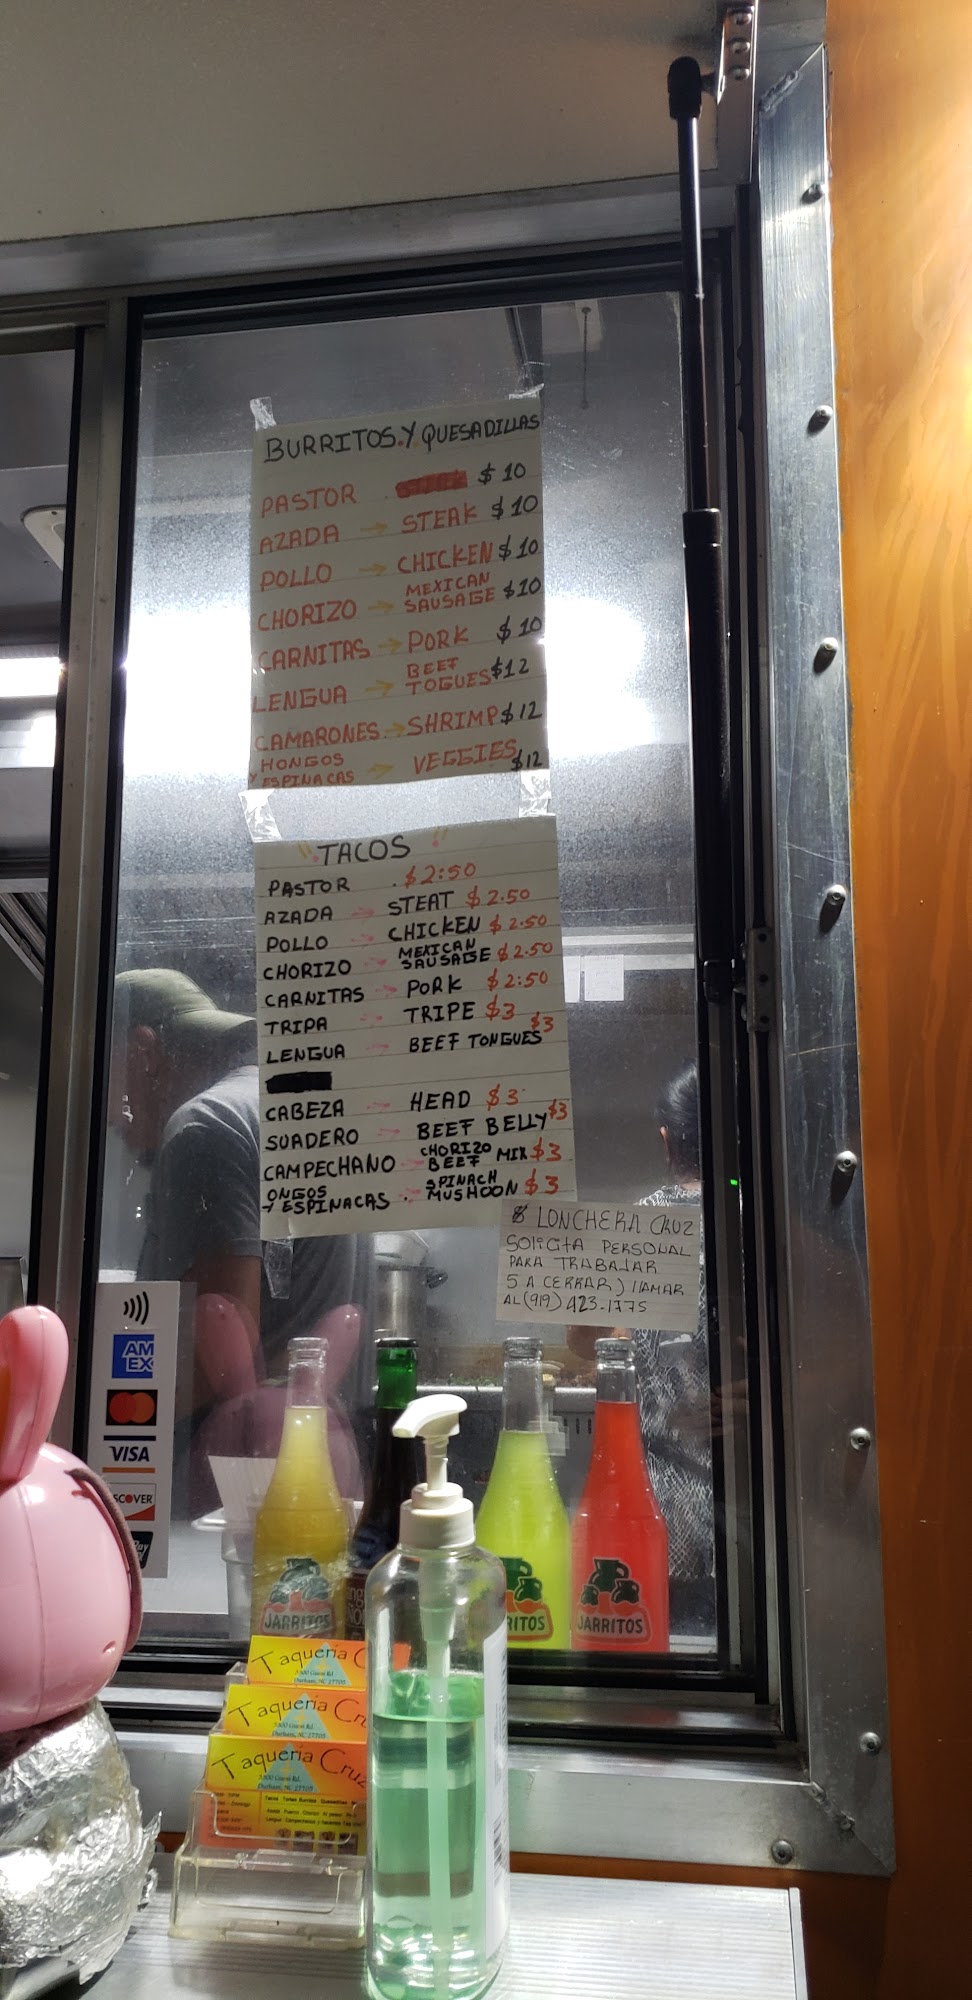 BURRITOS.Y QUESADILLAS
PASTOR $10
AZADA → STEAK $10
POLLO → CHICKEN $10
CHORIZO → MEXICAN SAUSAGE $10
CARNITAS → PORK $10
LENGUA → BEEF TOGUES $12
CAMARONES → SHRIMP $12
HONGOS Y ESPINACAS → VEGGIES $12
TACOS
PASTOR $2:50
AZADA → STEAT $2.50
POLLO → CHICKEN $2.50
CHORIZO → MEXICAN SAUSAGE $2.50
CARNITAS → PORK $2:50
TRIPA → TRIPE $3
LENGUA → BEEF TONGUES $3
CABEZA → HEAD $3
SUADERO → BEEF BELLY $3
CAMPECHANO → CHORIZO BEEF MIX $3
ONGOS Y ESPINACAS → SPINACH MUSHOON $3
LONCHERA CRUZ
SOLICITA PERSONAL
PARA TRABAJAR
5 A CERRAR) LLAMAR
AL (919) 423-1775
AM
EX
VISA
DISCOVER
Pay
JARRITOS
RITOS
JARRITOS
Taqueria C
3300 Guess Rd.
Durham, NC 27705
Taqueria Cru
3300 Guess Rd.
Durham, NC 27705
Taqueria Cruz
3300 Guess Rd.
Durham, NC 27705